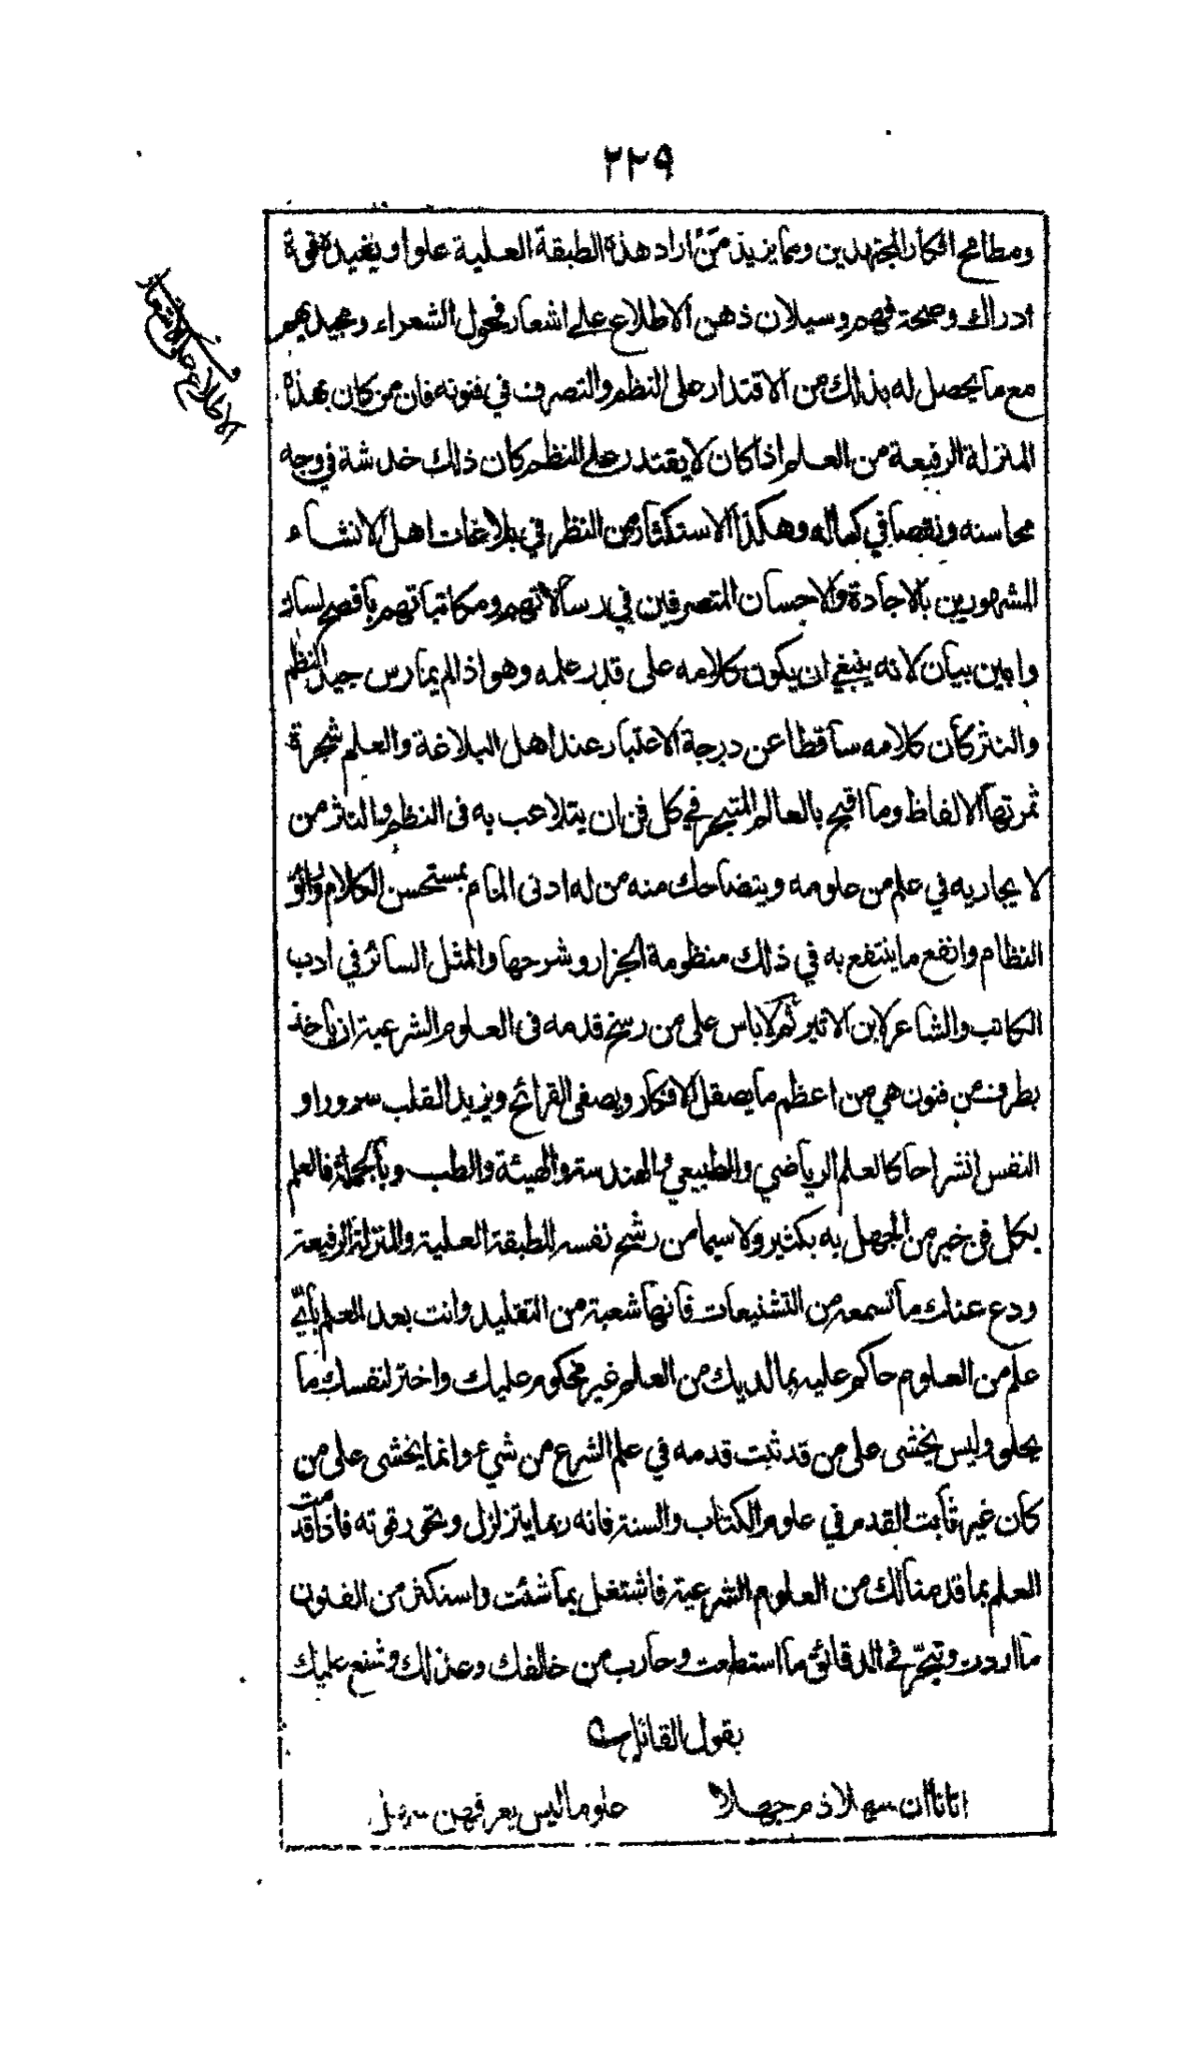 ٢٢٩
ومطامح افكار المجتهدين ومما يزيد من اراد هذه الطبقة العلية علوا ويفيده قوة
ادراك وصحة فهم وسيلان ذهن الاطلاع على اشعار فحول الشعراء ومجيديهم
مع ما يحصل له بذلك من الاقتدار على النظم والتصرف في فنونه فان من كان بهذه
المنزلة الرفيعة من العلم اذا كان لا يقتدر على النظم كان ذلك خدشة في وجه
محاسنه ونقصا في كماله وهكذا الاستكثار من النظر في بلاغات اهل الانشاء
المشهورين بالاجادة والاحسان المتصرفين في رسالاتهم ومكاتباتهم بافصح لسان
وابين بيان لانه ينبغي ان يكون كلامه على قدر علمه وهو اذا لم يمارس جيد النظم
والنثر كان كلامه ساقطا عن درجة الاعتبار عند اهل البلاغة والعلم شجرة
ثمرتها الالفاظ وما اقبح بالعالم المتبحر في كل فن ان يتلاعب به فى النظم والنثر من
لا يجاريه في علم من علومه ويتضاحك منه من له ادنى المام بمستحسن الكلام ورائق
النظام وانفع ما ينتفع به في ذلك منظومة الجزار وشرحها والمثل السائر في ادب
الكاتب والشاعر لابن الاثير ثم لا باس على من رسخ قدمه فى العلوم الشرعية ان ياخذ
بطرف من فنون هي من اعظم ما يصقل الافكار ويصفى القرائح ويزيد القلب سرورا و
النفس انشراحا كالعلم الرياضي والطبيعي والهندسة والهيئة والطب وبالجملة فالعلم
بكل فن خير من الجهل به بكثير ولا سيما من رشح نفسه للطبقة العلية والمنزلة الرفيعة
ودع عنك ما تسمعه من التشنيعات فانها شعبة من التقليد وانت بعد العلم باي
علم من العلوم حاكم عليه بما لديك من العلم غير محكوم عليك واختر لنفسك ما
يحلو وليس يخشى على من قد ثبت قدمه في علم الشرع من شيء وانما يخشى على من
كان غير ثابت القدم في علوم الكتاب والسنة فانه ربما يتزلزل وتخور قوته فاذا قدمت
العلم بما قدمنا لك من العلوم الشرعية فاشتغل بما شئت واستكثر من الفنون
ما اردت وتبحر في الدقائق ما استطعت وحارب من خالفك وعذلك وشنع عليك
بقول القائل
اتانا ان سهلا ذم جهلا علوما ليس يعرفهن سهل
الاطلاع على الاشعار